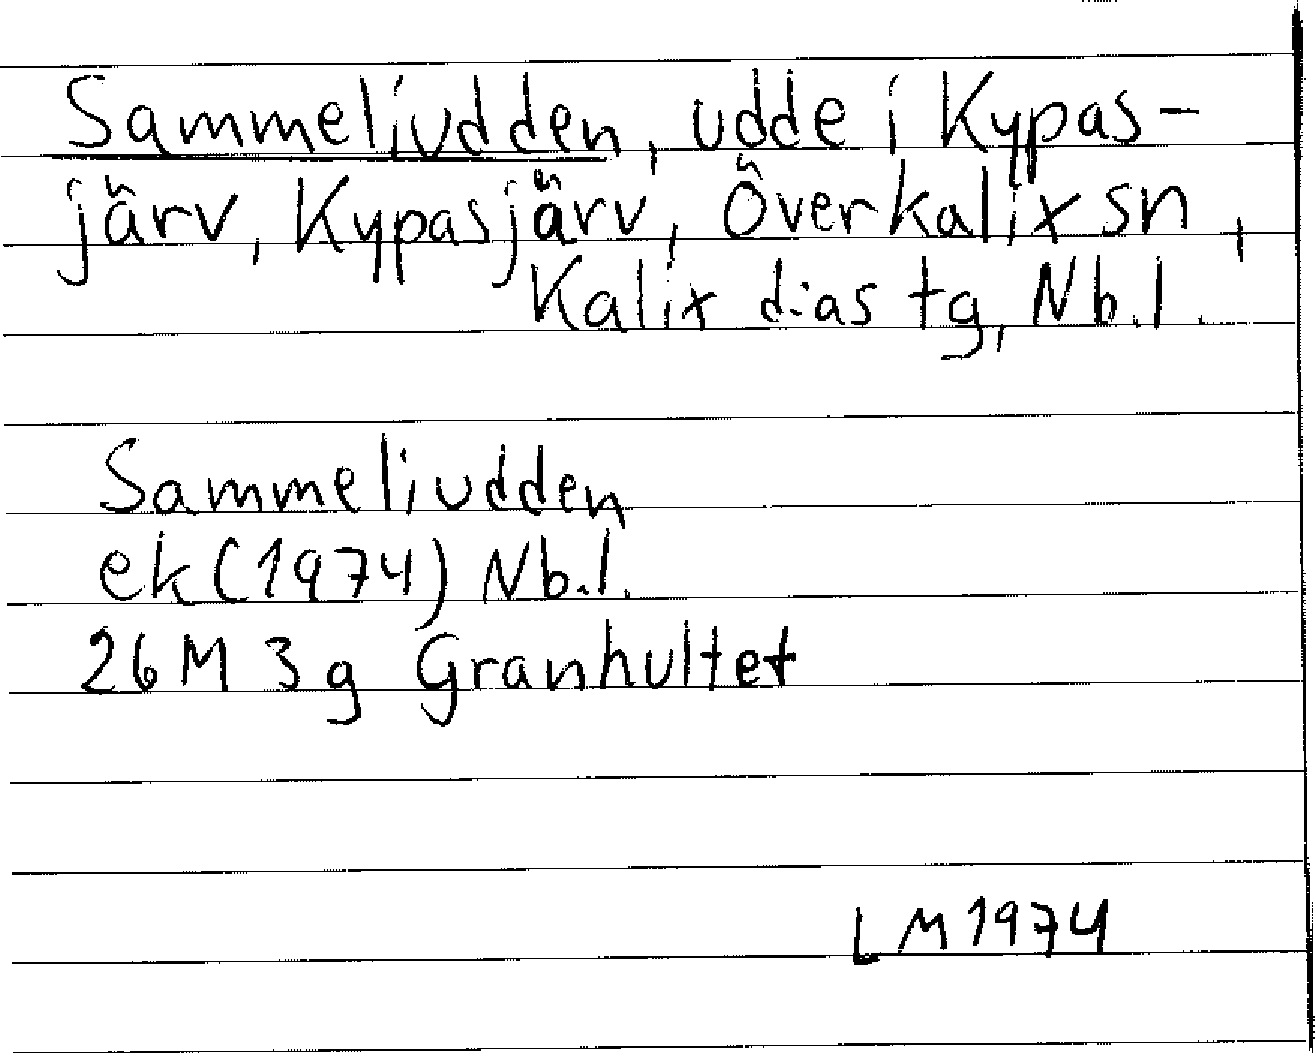 Sammeliudden, udde i Kypas-
järv, Kypasjärv, Överkalix sn,
Kalix d:as tg, Nb.l.
Sammeliudden
ek (1974) Nb.l.
26 M 3 g Granhultet
LM 1974